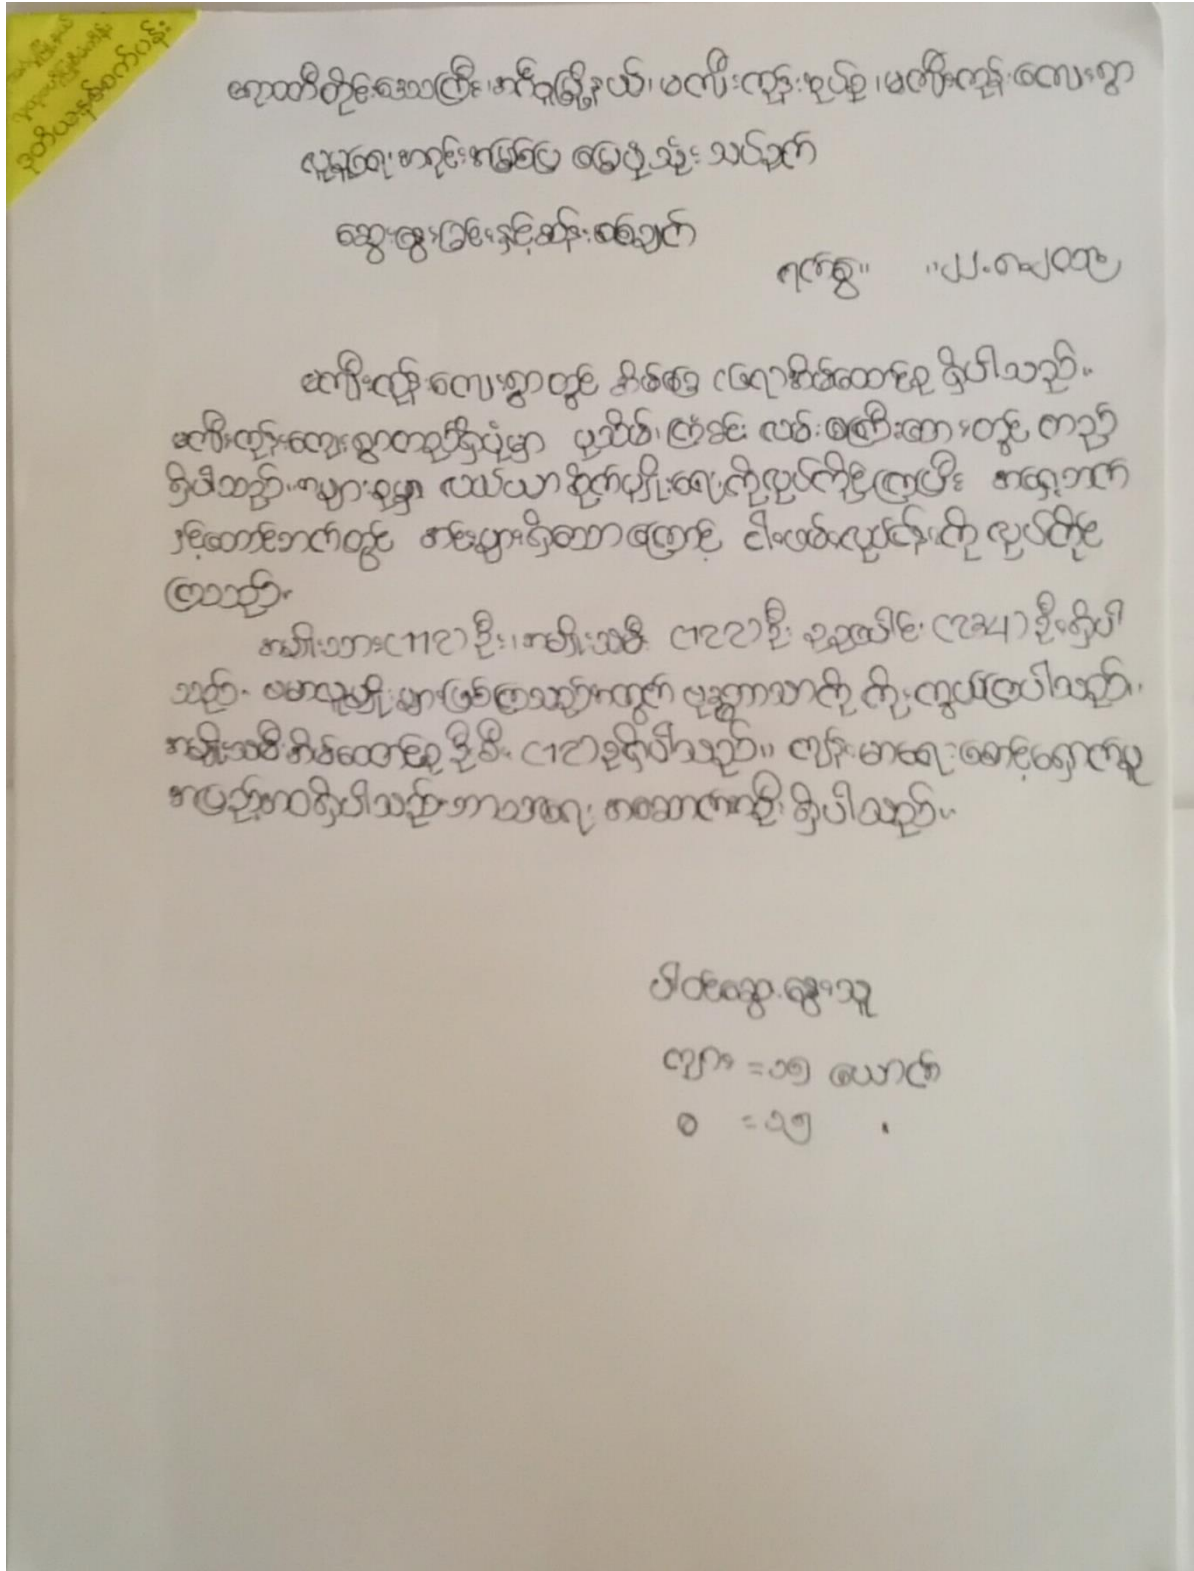 ဒုတိယနှစ်စက်ဝန်း
ဧရာဝတီတိုင်းဒေသကြီး၊ အင်္ဂပူမြို့နယ်၊ မကျီးကုန်းအုပ်စု၊ မကျီးကုန်းကျေးရွာ
လူမှုရေးအရင်းအမြစ်ပြ မြေပုံသုံး သပ်ချက်
ဆွေးနွေးခြင်းနှင့်ဆန်းစစ်ချက်
ရက်စွဲ။
မကျီးကုန်းကျေးရွာတွင် အိမ်ခြေ အိမ်ထောင်စု ရှိပါသည်။
မကျီးကုန်းကျေးရွာတည်ရှိပုံမှာ ပုသိမ်၊ ကြံခင်း လမ်းမကြီးဘေးတွင် တည်
ရှိပါသည်။ အများစုမှာ လယ်ယာစိုက်ပျိုးရေးကိုလုပ်ကိုင်ကြပြီး အရှေ့ဘက်
နှင့်တောင်ဘက်တွင် အင်းများရှိသောကြောင့် ငါးဖမ်းလုပ်ငန်းကို လုပ်ကိုင်
ကြသည်။
အမျိုးသား (112) ဦး၊ အမျိုးသမီး (122) ဦး စုစုပေါင်း (234) ဦးရှိပါ
သည်။ ဗမာလူမျိုးများဖြစ်ကြသည့်အတွက် ဗုဒ္ဓဘာသာကို ကိုးကွယ်ကြပါသည်။
အမျိုးသမီးအိမ်ထောင်စု ဦးစီး (12) ခုရှိပါသည်။ ကျန်းမာရေးစောင့်ရှောက်မှု
အပြည့်အဝရှိပါသည်။ ဘာသာရေး အဆောက်အဦး ရှိပါသည်။
ပါဝင်ဆွေးနွေးသူ
ကျား = ၁၅ ယောက်
မ = ၁၅ "